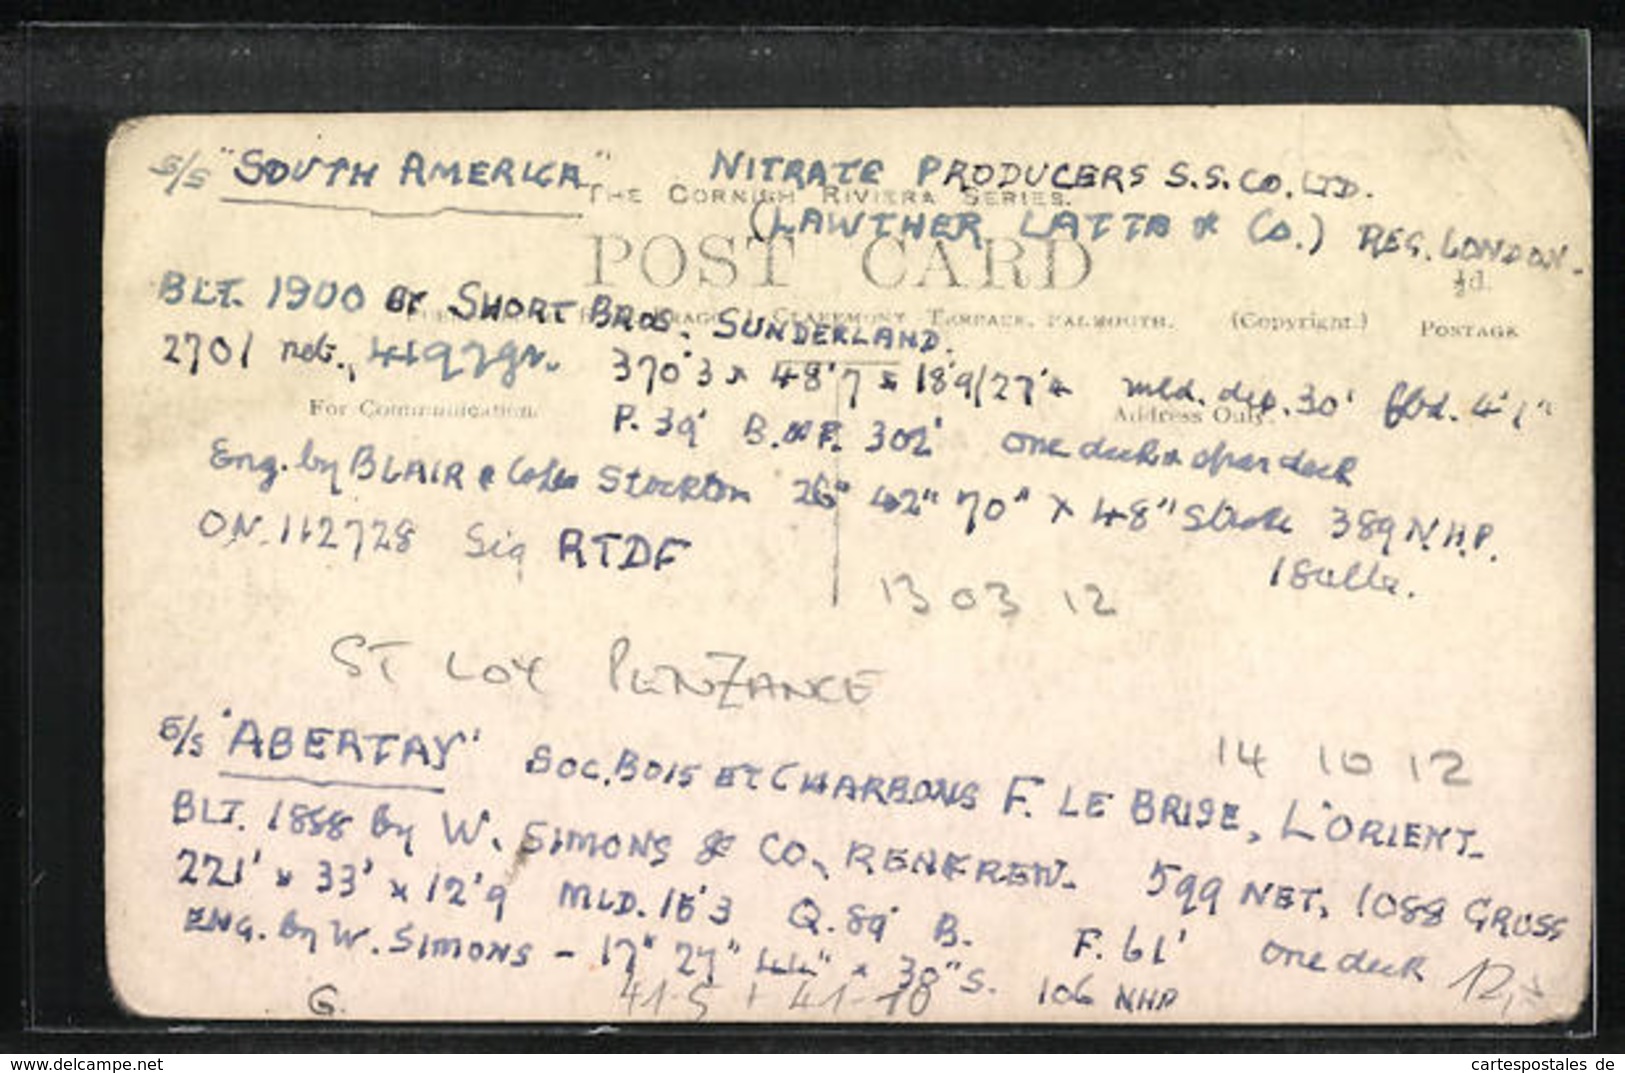 S/S "SOUTH AMERICA" NITRATE PRODUCERS S.S. CO. LTD.
THE CORNISH RIVIERA SERIES.
(LAWTHER LATTA & CO.) REG. LONDON.
POST CARD
½d.
BLT. 1900 BY SHORT BROS. SUNDERLAND.
CLAREMONT TERRACE, FALMOUTH. (Copyright.) POSTAGE
2701 net., 4197 gr. 370'3 x 48'7 x 18'9/27'4 mld. dep. 30' fbd. 4'1"
For Communication. Address Only.
P. 39' B. & P. 302' one deck & spar deck
Eng. by BLAIR & Co Ltd Stockton 26" 42" 70" x 48" Stroke 389 N.H.P.
O.N. 112728 Sig RTDF
13 03 12
ST LOY PENZANCE
S/S 'ABERTAY' SOC. BOIS ET CHARBONS F. LE BRISE, L'ORIENT.
14 10 12
BLT. 1888 by W. SIMONS & CO, RENFREW. 599 NET, 1088 GROSS
221' x 33' x 12'9 MLD. 15'3 Q. 89' B. F. 61' one deck
ENG. by W. SIMONS - 17" 27" 44" x 30" S. 106 NHP
12,-
G. 41-5 + 41-10
www.delcampe.net cartespostales de